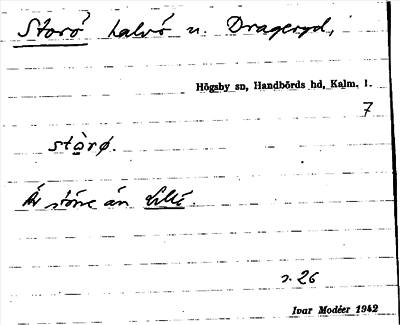 Storö halvö u. Drageryd,
Högsby sn, Handbörds hd, Kalm. l.
7
stòrø.
Är större än Lillö.
s. 26
Ivar Modéer 1942